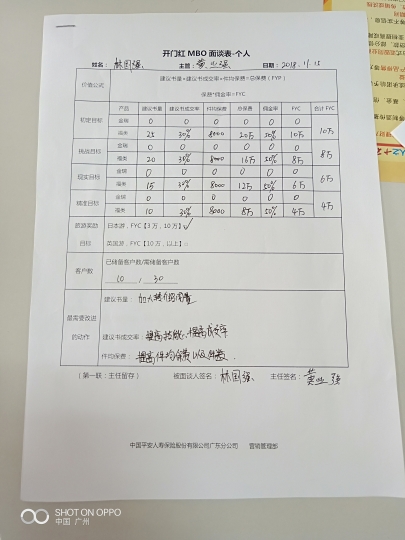 开门红 MBO 面谈表-个人
姓名： 林国强 主管： 黄业强 日期：2018.1.15
价值公式 建议书量×建议书成交率×件均保费=总保费（FYP）
保费*佣金率=FYC
产品 建议书量 建议书成交率 件均保费 总保费 佣金率 FYC 合计 FYC
初定目标 金瑞 0 0 0 0 0 0 10万
福类 25 30% 8000 20万 50% 10万
挑战目标 金瑞 0 0 0 0 0 0 8万
福类 20 30% 8000 16万 50% 8万
现实目标 金瑞 0 0 0 0 0 0 6万
福类 15 30% 8000 12万 50% 6万
精准目标 金瑞 0 0 0 0 0 0 4万
福类 10 30% 8000 8万 50% 4万
旅游奖励 日本游，FYC【3 万，10 万】✓
目标 英国游，FYC【10 万，以上】
客户数 已储备客户数/需储备客户数
10 / 30
建议书量： 加大转介绍量
最需要改进
的动作 建议书成交率： 提高技能，提高成交率
件均保费： 提高件均保费以及件数.
（第一联：主任留存） 被面谈人签名： 林国强 主任签名： 黄业强
中国平安人寿保险股份有限公司广东分公司 营销管理部
SHOT ON OPPO
中国·广州